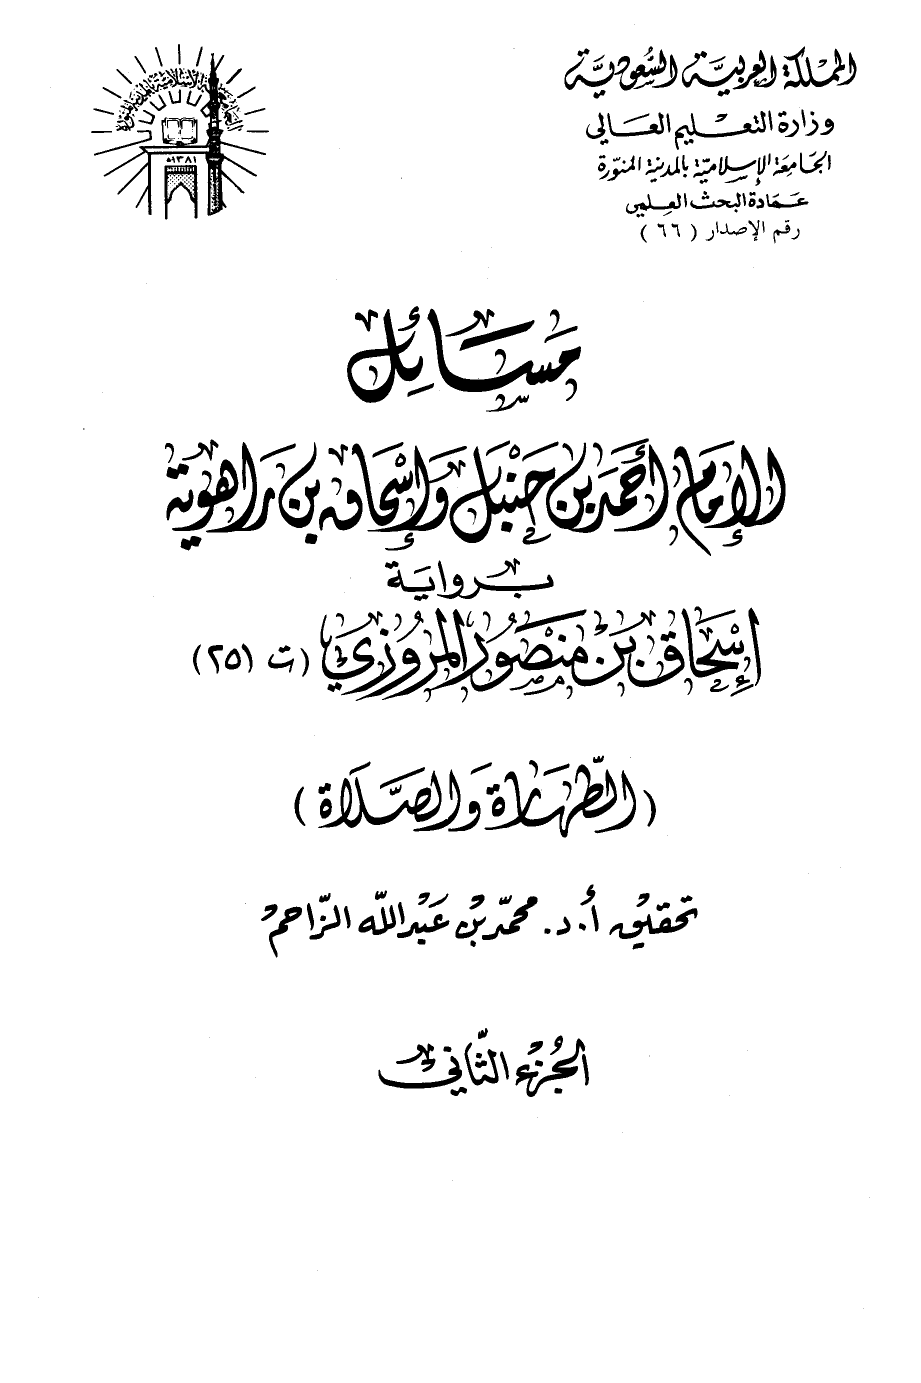 المملكة العربية السعودية
وزارة التعليم العالي
الجامعة الإسلامية بالمدينة المنورة
عمادة البحث العلمي
رقم الإصدار ( ٦٦ )
١٣٨١هـ
مسائل
الإمام أحمد بن حنبل وإسحاق بن راهوية
برواية
إسحاق بن منصور المروزي (ت ٢٥١)
(الطهارة والصلاة)
تحقيق أ.د. محمد بن عبدالله الزاحم
الجزء الثاني